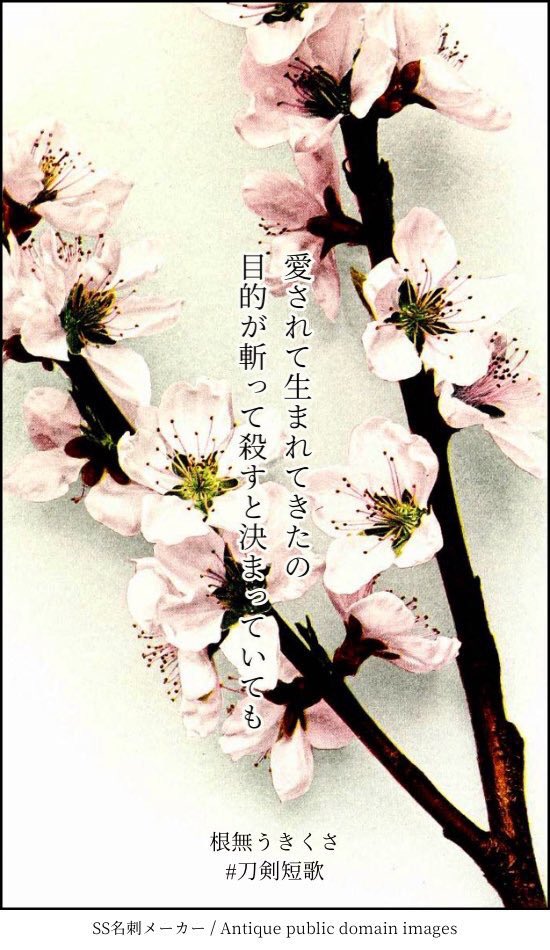 愛されて生まれてきたの
目的が斬って殺すと決まっていても
根無うきくさ
#刀剣短歌
SS名刺メーカー / Antique public domain images